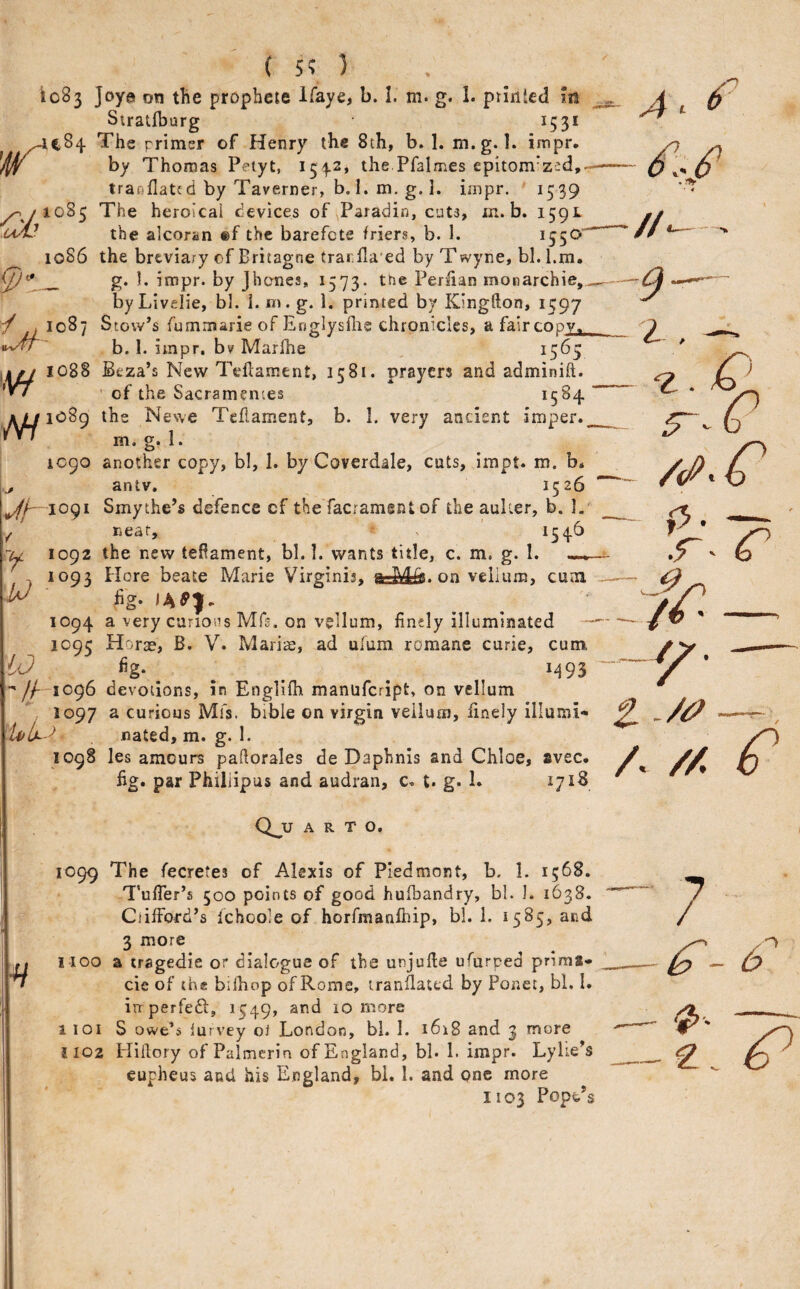 ( 55 )
1083 Joye on the prophete Ifaye, b. l. m. g. l. printed in 4. 6
Stratfburg 1531
1084 The primer of Henry the 8th, b. l. m. g. l. impr.
by Thomas Petyt, 1542, the Pfalmes epitomized, 6. 6
tranflated by Taverner, b. l. m. g. l. impr. 1539
1085 The heroical devices of Paradin, cuts, m. b. 1591
the alcoran of the barefote friers, b. l. 1550 11
1086 the breviary of Britagne tranflated by Twyne, bl. l. m.
g. l. impr. by Jhones, 1573. the Perfian monarchie, 9
by Livelie, bl. l. m. g. l. printed by Kingfton, 1597
1087 Stow's fummarie of Englyfhe chronicles, a fair copy, 2
b. l. impr. by Marfhe 1565
1088 Beza's New Teftament, 1581. prayers and adminift. 2. 6
of the Sacramentes 1584
1089 the Newe Teftament, b. l. very ancient imper. 5. 6
m. g. l.
1090 another copy, bl, l. by Coverdale, cuts, impt. m. b. 10. 6
antv. 1526
1091 Smythe's defence of the facrament of the aulter, b. l.
neat, 1546
1092 the new teftament, bl. l. wants title, c. m. g. l. 5. 6
1093 Hore beate Marie Virginis, a Mfs. on vellum, cum 9
fig. 1497.
1094 a very curious Mfs. on vellum, finely illuminated
1095 Horæ, B. V. Mariæ, ad ufum romane curie, cum
fig. 1493 7.
1096 devotions, in Englifh manufcript, on vellum
1097 a curious Mfs. bible on virgin vellum, finely illumi- 2. 10
nated, m. g. l.
1098 les amours paftorales de Daphnis and Chloe, avec. 1. 11. 6
fig. par Phillipus and audran, c. t. g. l. 1718
QUARTO.
1099 The fecretes of Alexis of Piedmont, b. l. 1568.
Tuffer's 500 points of good hufbandry, bl. l. 1638. 7
Clifford's fchoole of horfmanfhip, bl. l. 1585, and
3 more
1100 a tragedie or dialogue of the unjufte ufurped prima- 6 - 6
cie of the bifhop of Rome, tranflated by Ponet, bl. l.
imperfect, 1549, and 10 more
1101 Stowe's furvey of London, bl. l. 1618 and 3 more
1102 Hiftory of Palmerin of England, bl. l. impr. Lylie's 2. 6
eupheus and his England, bl. l. and one more
1103 Pope's